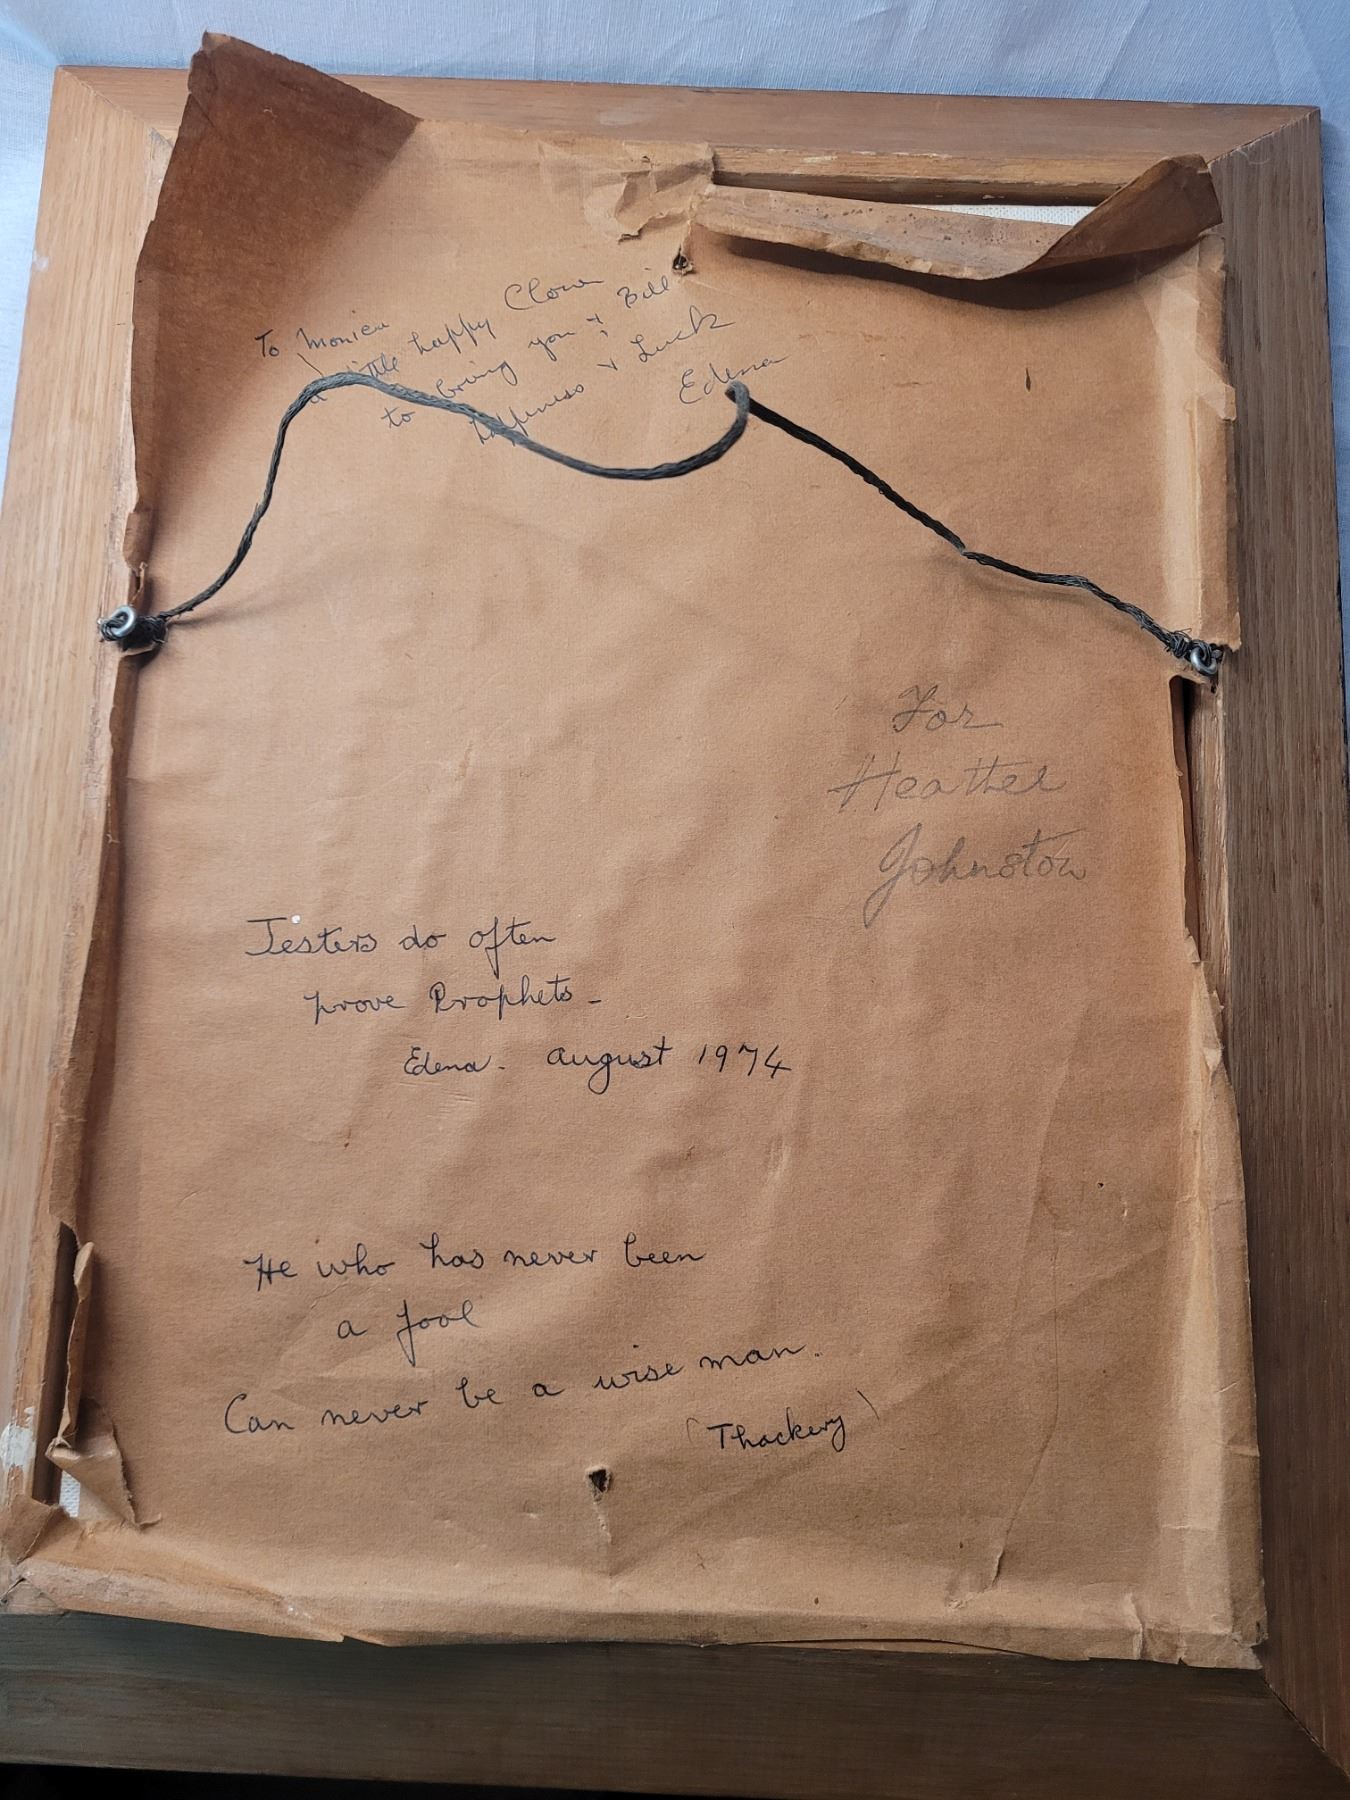 To Monica
a little happy Clown
to bring you + Bill
happiness + Luck
Edena
For
Heather
Johnston
Jesters do often
prove Prophets -
Edena. August 1974
He who has never been
a fool
Can never be a wise man.
(Thackery)